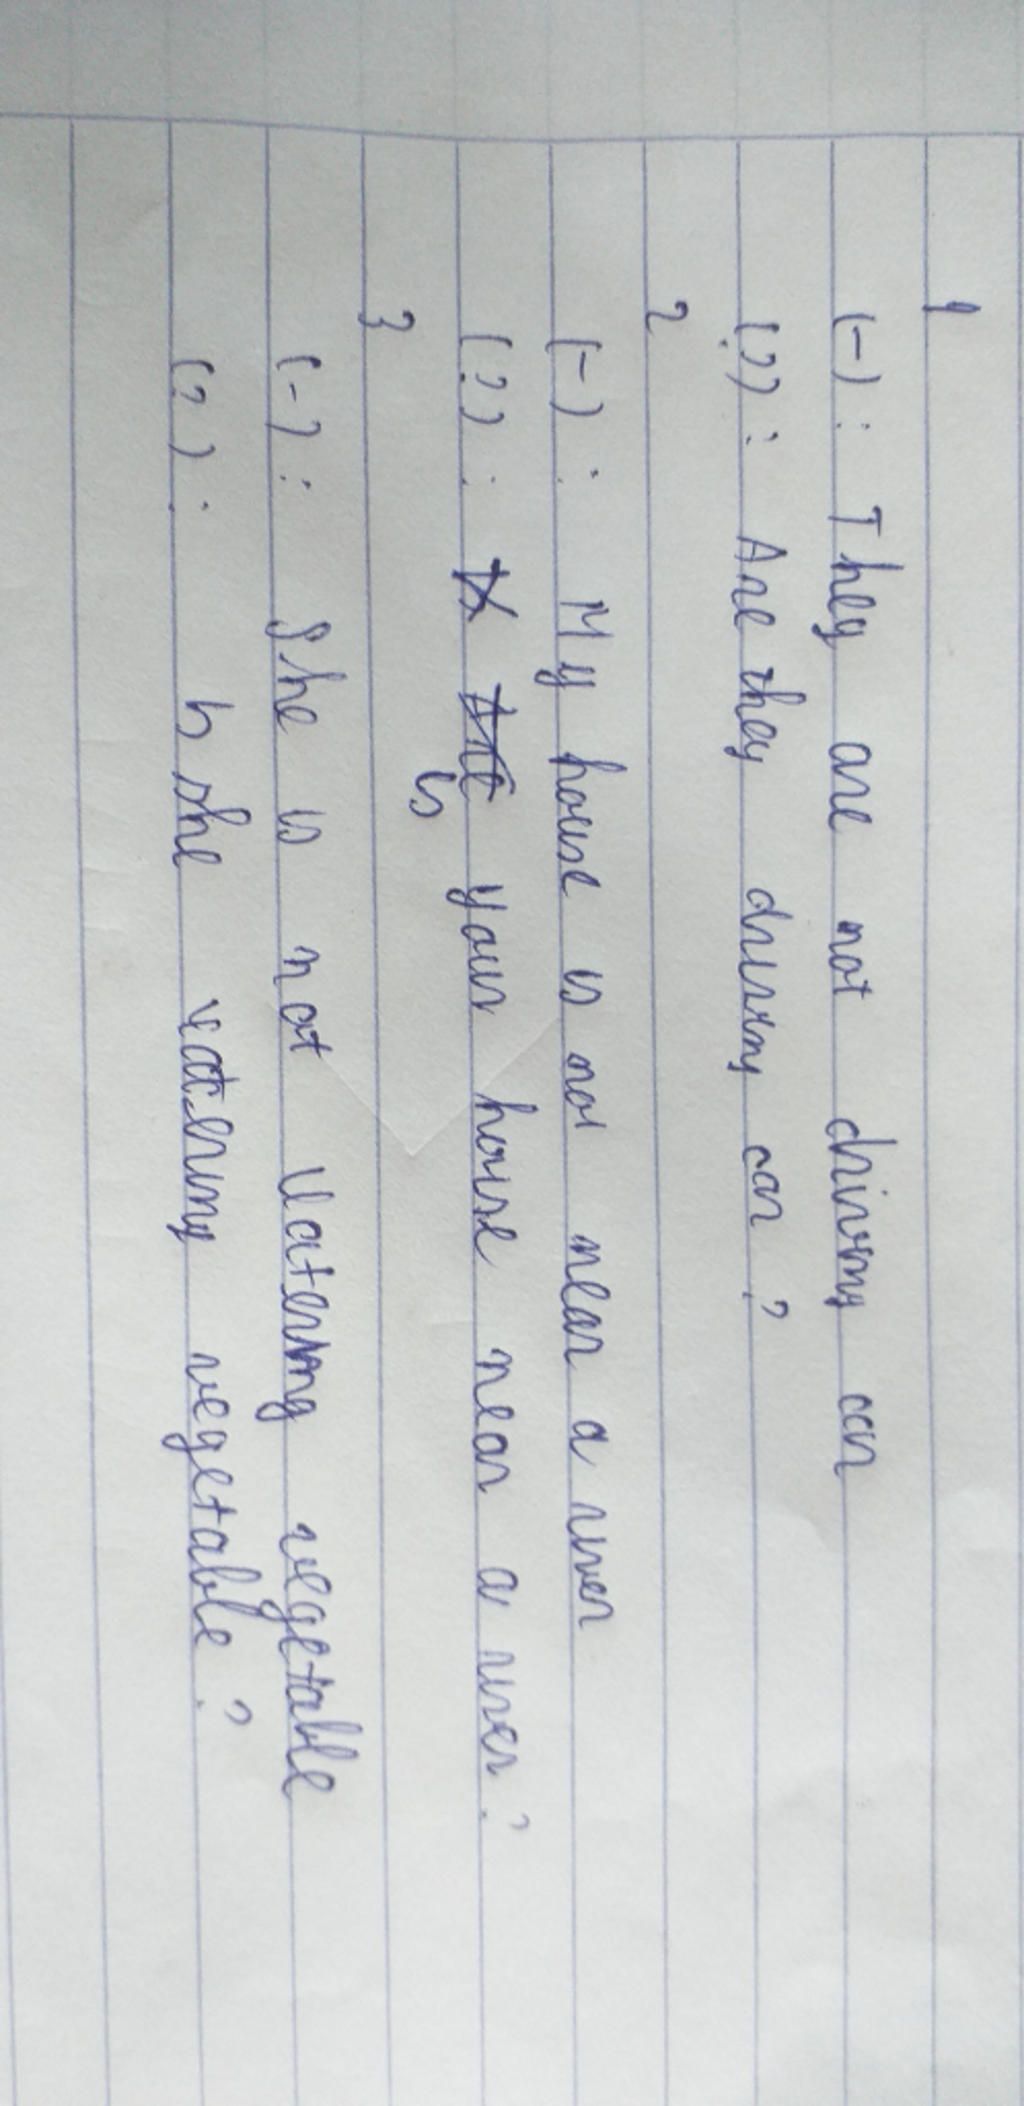 1
(-) : They are not driving car
(?) : Are they driving car ?
2
(-) : My house is not near a river
(?) : Is your house near a river ?
3
(-) : She is not watering vegetable
(?) : Is she watering vegetable ?